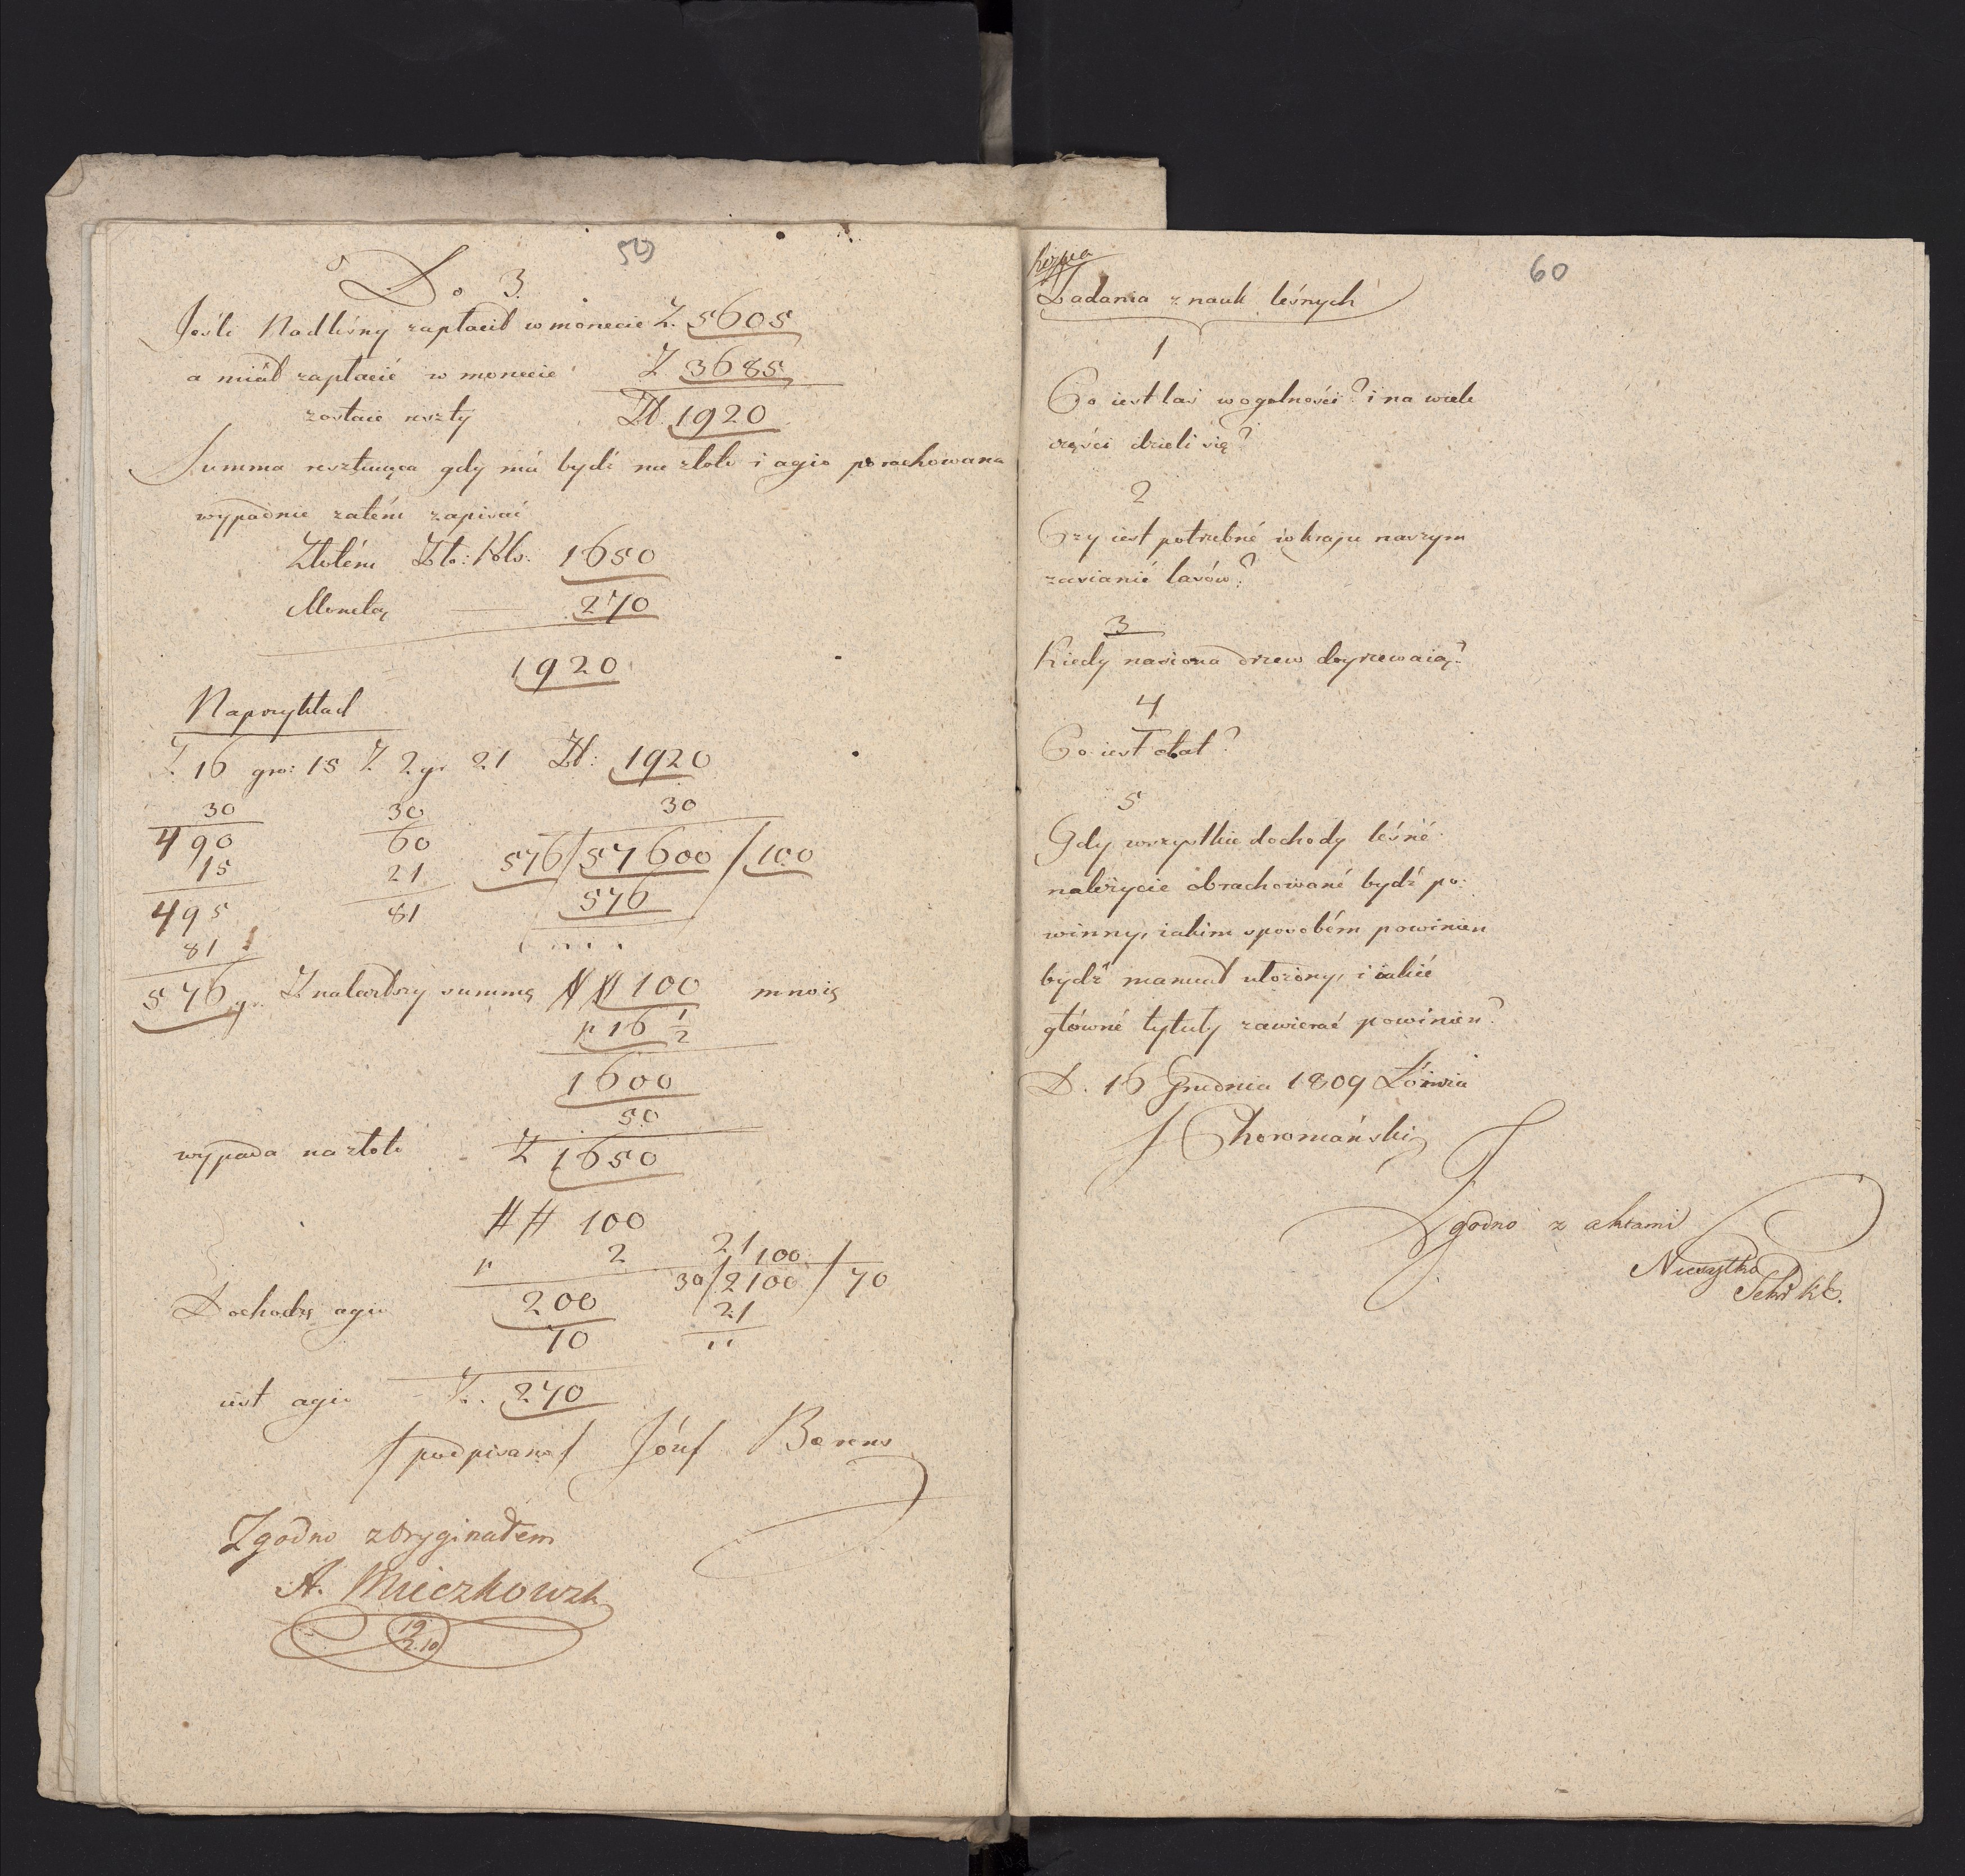 59
Do 3.
Jeśli Nadleśny zapłacił w monecie Z. 5605
a miał zapłacić w monecie Z 3685
zostaie reszty Zł. 1920
Summa resztuiąca gdy má bydź na złoto i agio porachowana
wypadnie zatém zapisać
Złotém Zło: Pols. 1650
Monetą — 270
1920
Naprzykład
Z 16 gro: 15 Z 2 gr 21 Zł: 1920
30 30 30
490 60 576/57600/100
15 21 576
495 81 ....
81
576 gr. Znalazłszy summę ## 100 mnożę
p 16 1/2
1600
50
wypada na złoto Z 1650
## 100
p 2 21 100
30/2100/70
Dochodzę agio 200 21
70 ..
iest agio Z. 270
/podpisano/ Józef Berens
Zgodno z Oryginałem
A. Mieczkowski
19
2.10
60
kopia
Zadania z nauk leśnych
1
Co iest las w ogolności? i na wiele
części dzieli się?
2
Czy iest potrzebné w kraju naszym
zasianié lasów?
3
Kiedy nasiona drzew doyrzewaią?
4
Co iest etat?
5
Gdy wszystkie dochody leśné
należycie obrachowané bydź po:
winny, iakim sposobém powinien
bydź manuał ułożony, i iakié
główné tytuły zawierać powinien?
D. 16 Grudnia 1809 Łomża
/ Choromański
Zgodno z aktami